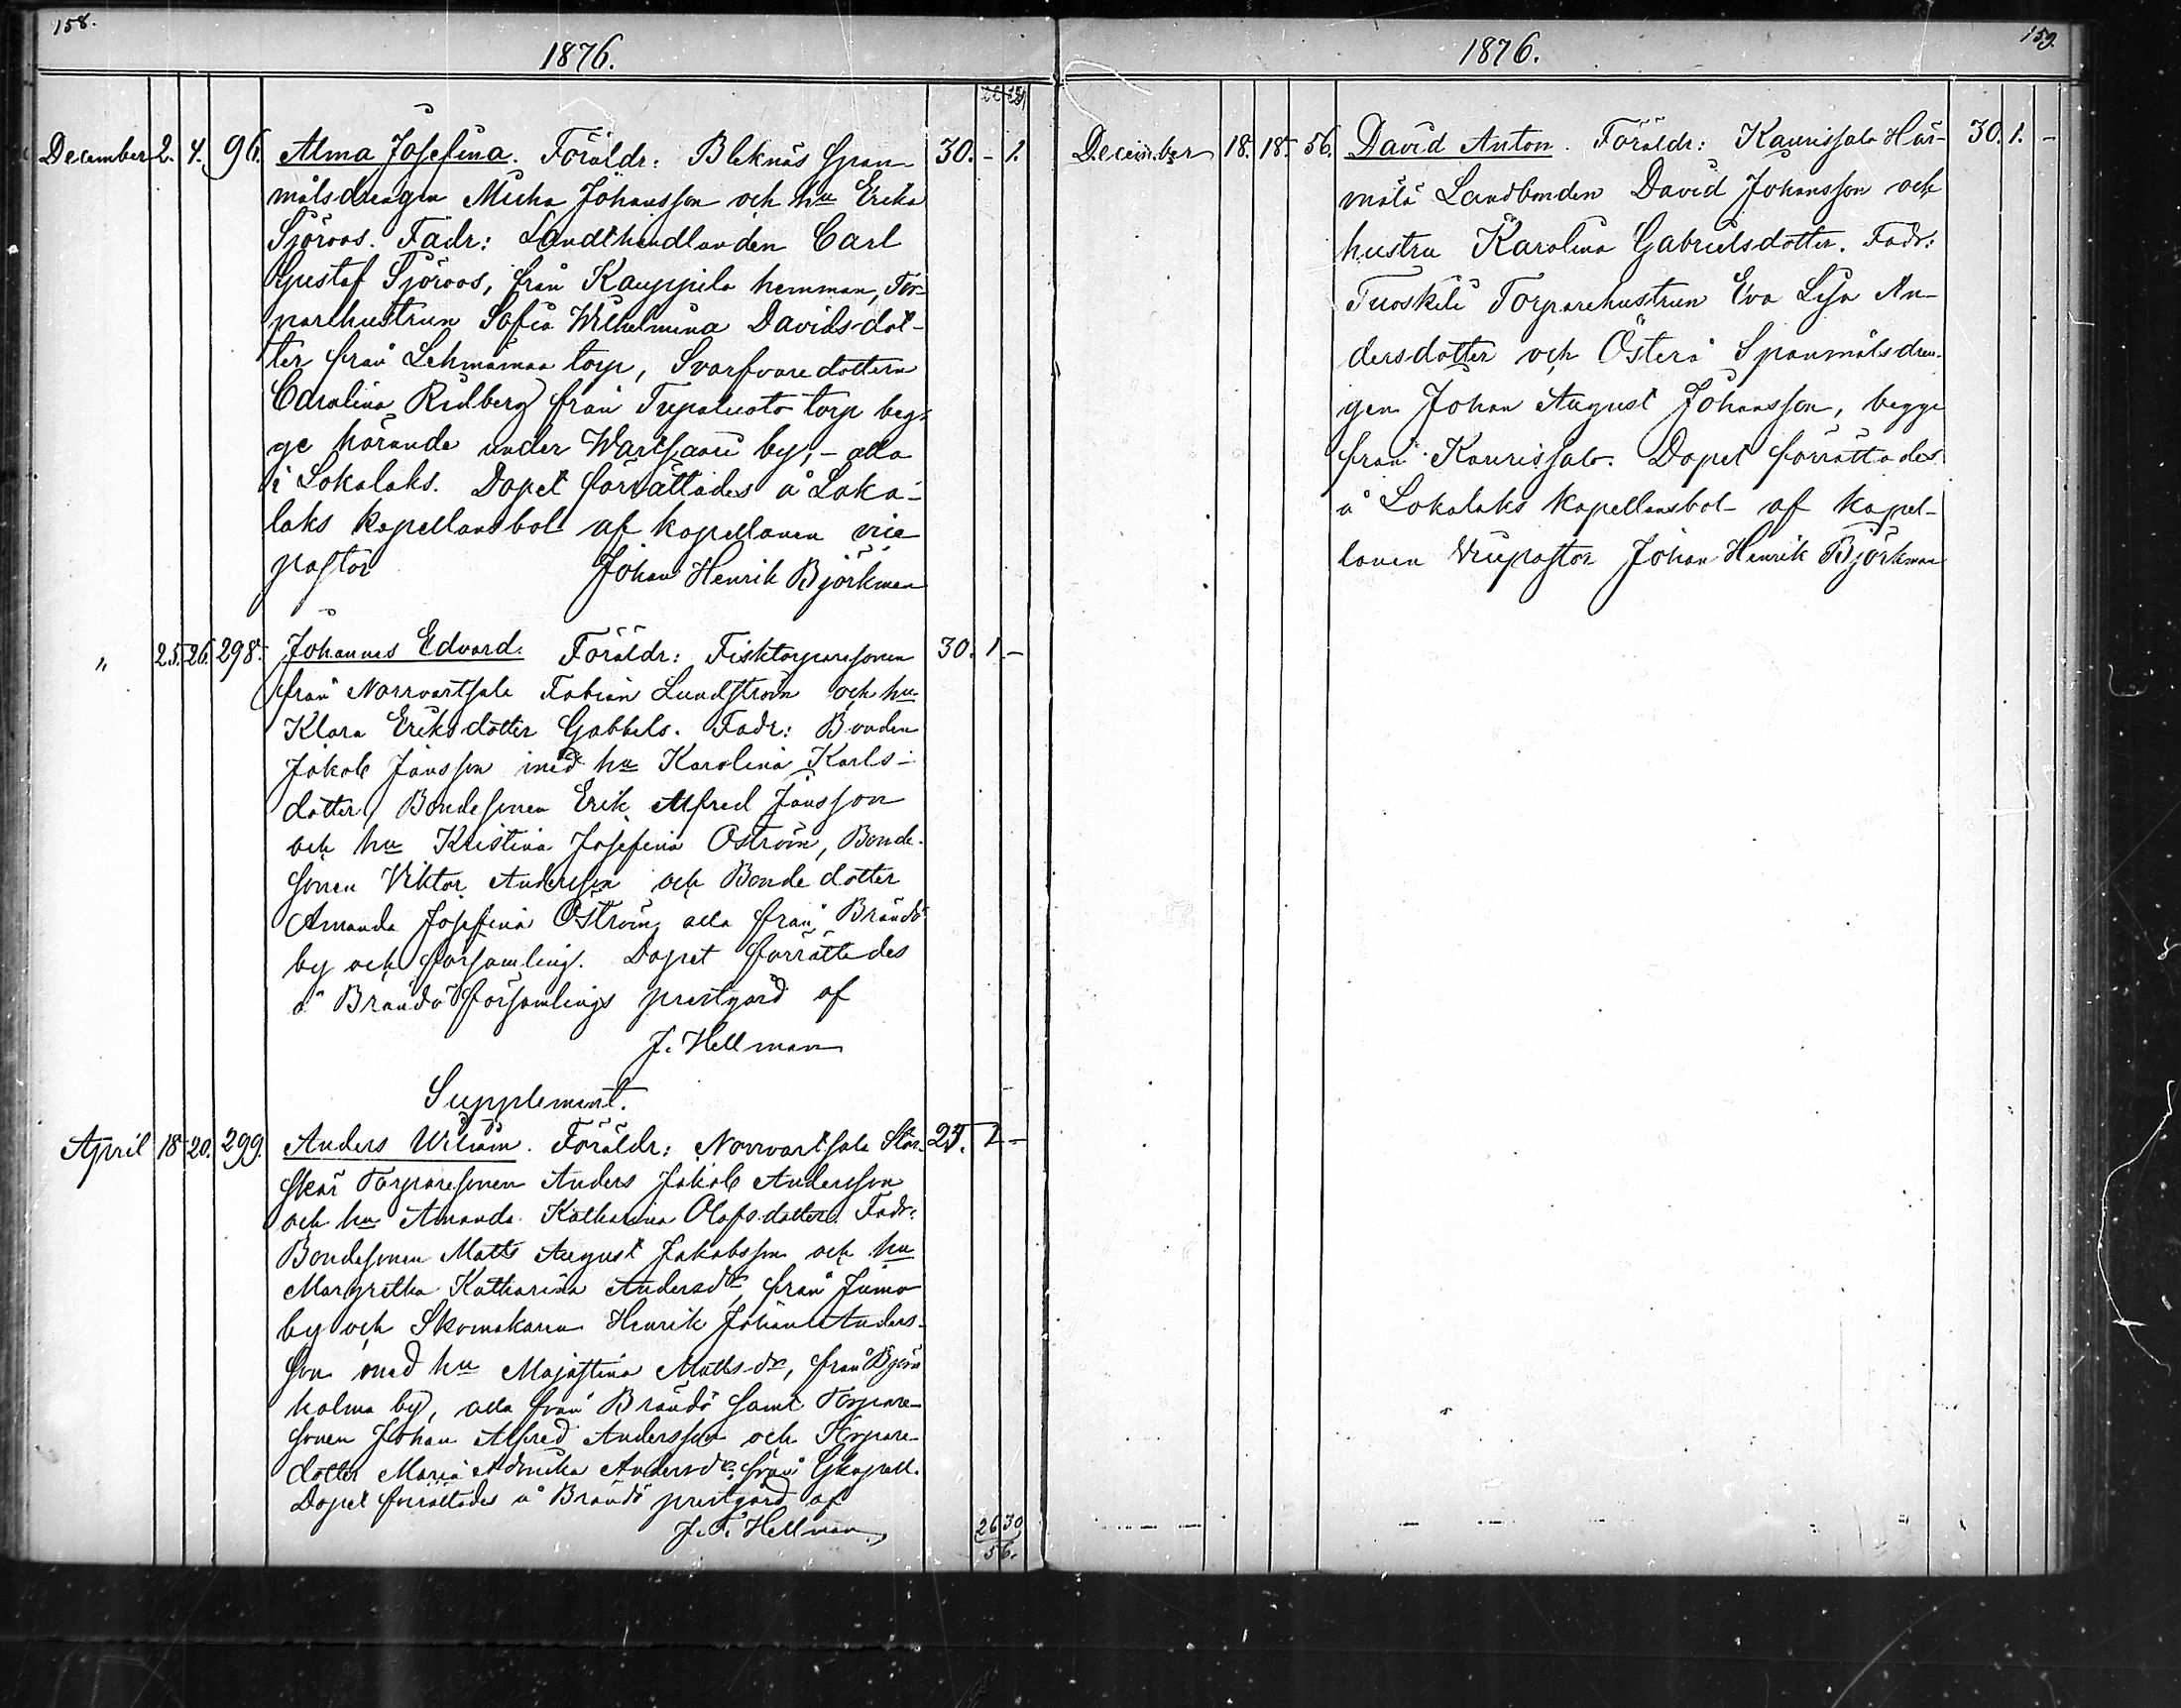 158.
1876.
December 2. 4. 96. Alma Josefina. Föräldr: Bleknäs Span- 30. - 1.
målsdrängen Micha Johansson och hu Erika
Sjöroos. Fadr: Landthandlanden Carl
Gustaf Sjöroos, från Kauppila hemman, Tor-
parhustrun Sofia Wilhelmina Davidsdot-
ter från Lehmämaa torp, Svarfvaredottern
Carolina Ridberg från Tupaluoto torp beg-
ge hörande under Wartsaari by, - alla
i Lokalaks. Dopet förrättades å Loka-
laks kapellansbol af kapellanen vice
pastor Johan Henrik Björkman
" 25. 26. 298. Johannes Edvard. Föräldr: Fisktorparesonen 30. 1. -
från Norrvartsala Fabian Lundström och hu
Klara Eriksdotter Gabbels. Fadr: Bonden
Jakob Jansson med hu Karolina Karls-
dotter, Bondesonen Erik Alfred Jansson
och hu Kristina Josefina Öström, Bonde-
sonen Viktor Andersson och Bondedotter
Amanda Josefina Öström, alla från Brändö
by och församling. Dopet förrättades
å Brändö församlings prestgård af
J. Hellman
Supplement.
April 18 20. 299. Anders Wiliam. Föräldr: Norrvartsala Stor- 25. 1 -
skär Torparesonen Anders Jakob Andersson
och hu Amanda Katharina Olofsdotter. Fadr:
Bondesonen Matts August Jakobsson och hu
Margretha Katharina Andersdr, från Jurmo
by och Skomakaren Henrik Johan Anders-
son med hu Majastina Mattsdr, från Björn
holma by, alla från Brändö samt Torpare-
sonen Johan Alfred Andersson och Torpare-
dotter Maria Andersdr, från
Dopet förrättades å Brändö prestgård af
J. F. Hellman
26 30
56.
159.
1876.
December 18. 18. 56. David Anton. Föräldr: Kaurissalo Här- 30. 1. -
mälä Landbonden David Johansson och
hustru Karolina Gabrielsdotter. Fadr:
Tuoskeli Torparehustrun Eva Lisa An-
dersdotter och Österå Spanmålsdrän-
gen Johan August Johansson, begge
från Kaurissalo. Dopet förrättades
å Lokalaks kapellansbol af kapel-
lanen Vicepastor Johan Henrik Björkman